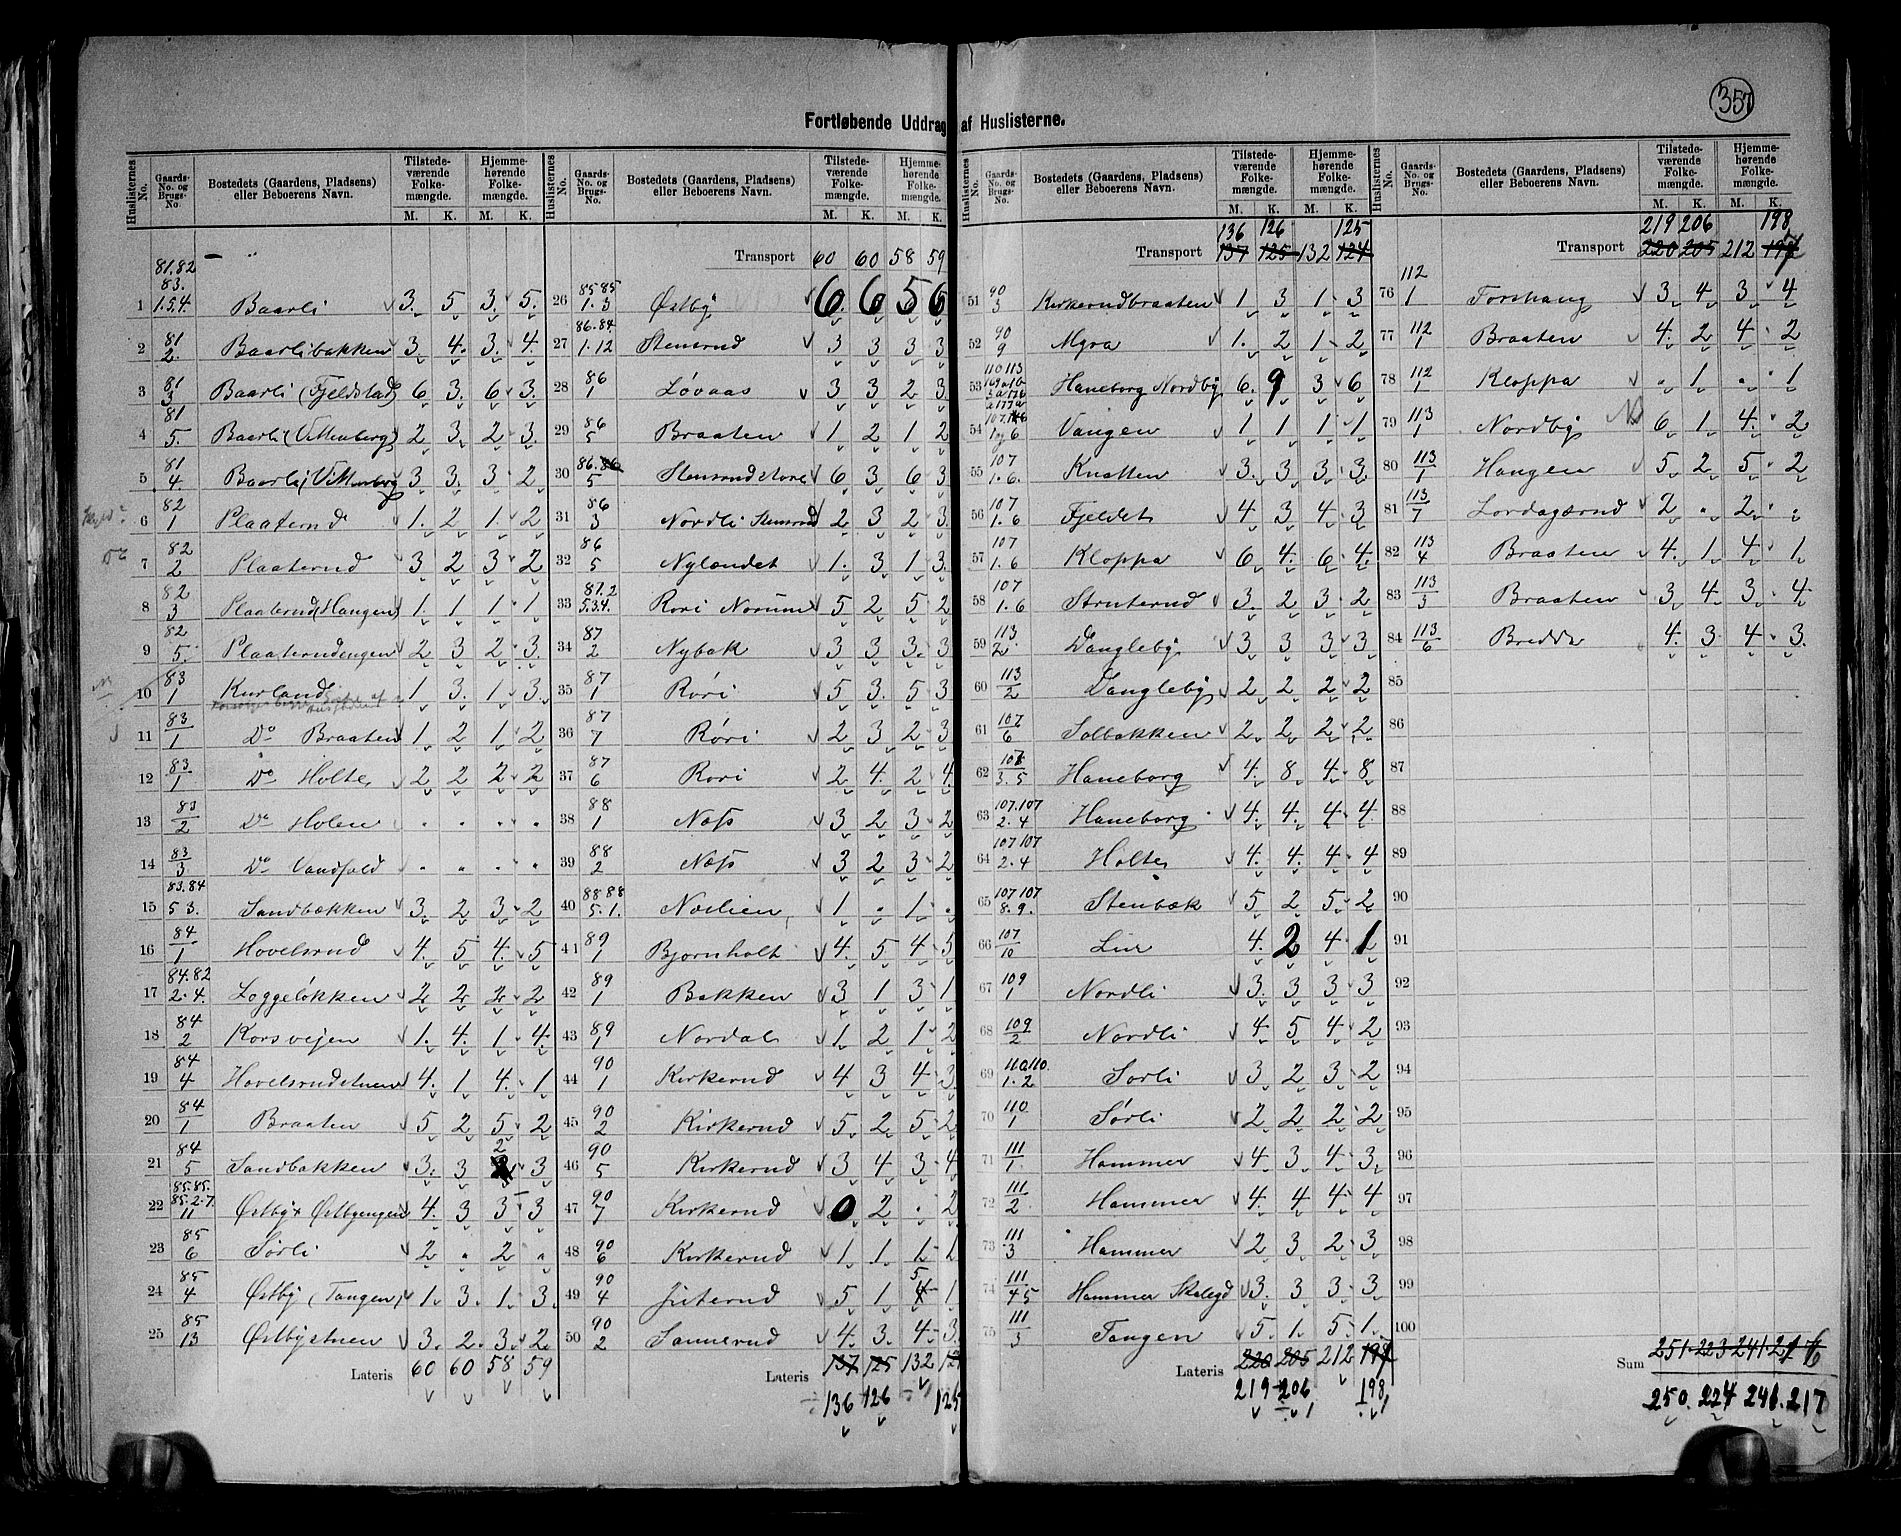 357
Fortløbende Uddrag af Huslisterne.
Huslisternes No. | Gaards-No. og Brugs-No. | Bostedets (Gaardens, Pladsens) eller Beboerens Navn. | Tilstedeværende Folkemængde. M. K. | Hjemmehørende Folkemængde. M. K.
1 81.82 83. 1.5.4. Baarli 3 5 3 5
2 81/2 Baarlibakken 3 4 3 4
3 81/3 Baarli (Fjeldstad) 6 3 6 3
4 81/5 Baarli (Vittenberg) 2 3 2 3
5 81/4 Baarli (Vittenberg 3 3 3 2
6 82/1 Plaaterud 1 2 1 2
7 82/2 Plaaterud 3 2 3 2
8 82/3 Plaaterud (Haugen) 1 1 1 1
9 82/5 Plaaterudengen 2 3 2 3
10 83/1 Kurland 1 3 1 3
11 83/1 Do Braaten 1 2 1 2
12 83/1 Do Holte 2 2 2 2
13 83/2 Do Holen . . . .
14 83/3 Do Vandfald . . . .
15 83.84 5 3. Sandbækken 3 2 3 2
16 84/1 Hovelsrud 4 5 4 5
17 84.82 2.4. Loggeløkken 2 2 2 2
18 84/2 Korsvejen 1 4 1 4
19 84/4 Hovelsrudstuen 4 1 4 1
20 84/1 Braaten 5 2 5 2
21 84/5 Sandbakken 3 3 2 3
22 85.85. 85.2.7. 11 Østby Østbyengen 4 3 3 3
23 85/6 Sørli 2 . 2 .
24 85/4 Østby (Tangen) 1 3 1 3
25 85/13 Østbystuen 3 2 3 2
Lateris 60 60 58 59
Transport 60 60 58 59
26 85 85 1. 3 Østby 6 6 5 6
27 86.84. 1.12 Stenerud 3 3 3 3
28 86/1 Løvaas 3 3 2 3
29 86/5 Braaten 1 2 1 2
30 86.86 5 Stensrudstore 6 3 6 3
31 86/3 Nordli Stensrud 2 3 2 3
32 86/5 Nylændet 1 3 1 3
33 87.2 5.3.4. Røri Norum 5 2 5 2
34 87/2 Nybak 3 3 3 3
35 87/1 Røri 5 3 5 3
36 87/7 Røri 2 3 2 3
37 87/6 Røri 2 4 2 4
38 88/1 Næss 3 2 3 2
39 88/2 Næss 3 2 3 2
40 88 88 5.1. Næslien 1 . 1 .
41 89/1 Bjørnholt 4 5 4 5
42 89/1 Bakken 3 1 3 1
43 89/1 Nordal 1 2 1 2
44 90/1 Kirkerud 4 3 4 3
45 90/2 Kirkerud 5 2 5 2
46 90/5 Kirkerud 3 4 3 4
47 90/7 Kirkerud 0 2 . 2
48 90/6 Kirkerud 1 1 1 1
49 90/4 Juterud 5 1 5 1
50 90/2 Sannerud 4 3 4 3
Lateris 137 125 132
136 126 125
136 126 125
Transport 137 125 132 124
51 90/3 Kirkerudbraaten 1 3 1 3
52 90/9 Myra 1 2 1 2
53 110 113 Haneborg Nordby 6 9 3 6
54 Vangen 1 1 1 1
55 107 1.6. Knatten 3 3 3 3
56 107 1.6 Fjeldet 4 3 4 3
57 107 1.6 Kloppa 6 4 6 4
58 107 1.6 Struterud 3 2 3 2
59 113/2 Dangleby 3 3 3 3
60 113/2 Dangleby 2 2 2 2
61 107/6 Solbakken 2 2 2 2
62 107 3.5 Haneborg 4 8 4 8
63 107.107 2.4 Haneborg 4 4 4 4
64 107 107 2.4 Holte 4 4 4 4
65 107 107 8.9. Stenbæk 5 2 5 2
66 107/10 Lier 4 2 4 1
67 109/1 Nordli 3 3 3 3
68 109/2 Nordli 4 5 4 2
69 110.110. 1.2 Sørli 3 2 3 2
70 110/1 Sørli 2 2 2 2
71 111/1 Hammer 4 3 4 3
72 111/2 Hammer 4 4 4 4
73 111/3 Hammer 2 3 2 3
74 111/45 Hammer Skalegd 3 3 3 3
75 111/3 Tangen 5 1 5 1
Lateris 220 205 212 197
219 206 198
219 206 198
Transport 220 205 212 197
76 112/1 Forshaug 3 4 3 4
77 112/1 Braaten 4 2 4 2
78 112/1 Kloppa . 1 . 1
79 113/1 Nordby 6 1 4 2
80 113/1 Haugen 5 2 5 2
81 113/7 Lordagsrud 2 . 2 .
82 113/4 Braaten 4 1 4 1
83 113/3 Braaten 3 4 3 4
84 113/6 Bredde 4 3 4 3
85
86
87
88
89
90
91
92
93
94
95
96
97
98
99
100
Sum 251 223 241 216
250. 224 241. 217